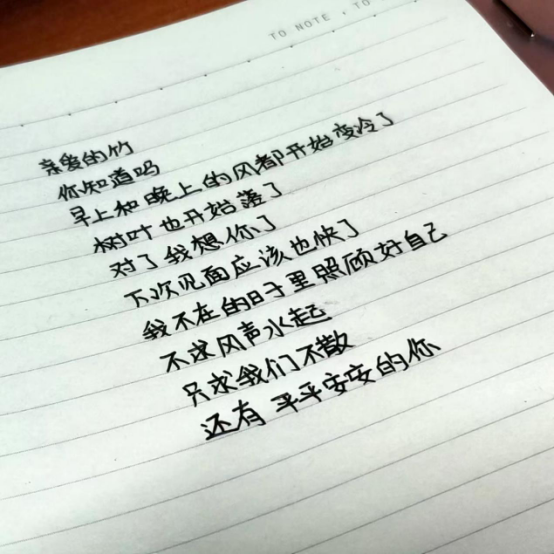 TO NOTE . TO
亲爱的竹
你知道吗
早上和晚上的风都开始变冷了
树叶也开始落了
对了我想你了
下次见面应该也快了
我不在的日子里照顾好自己
不求风声水起
只求我们不散
还有 平平安安的你